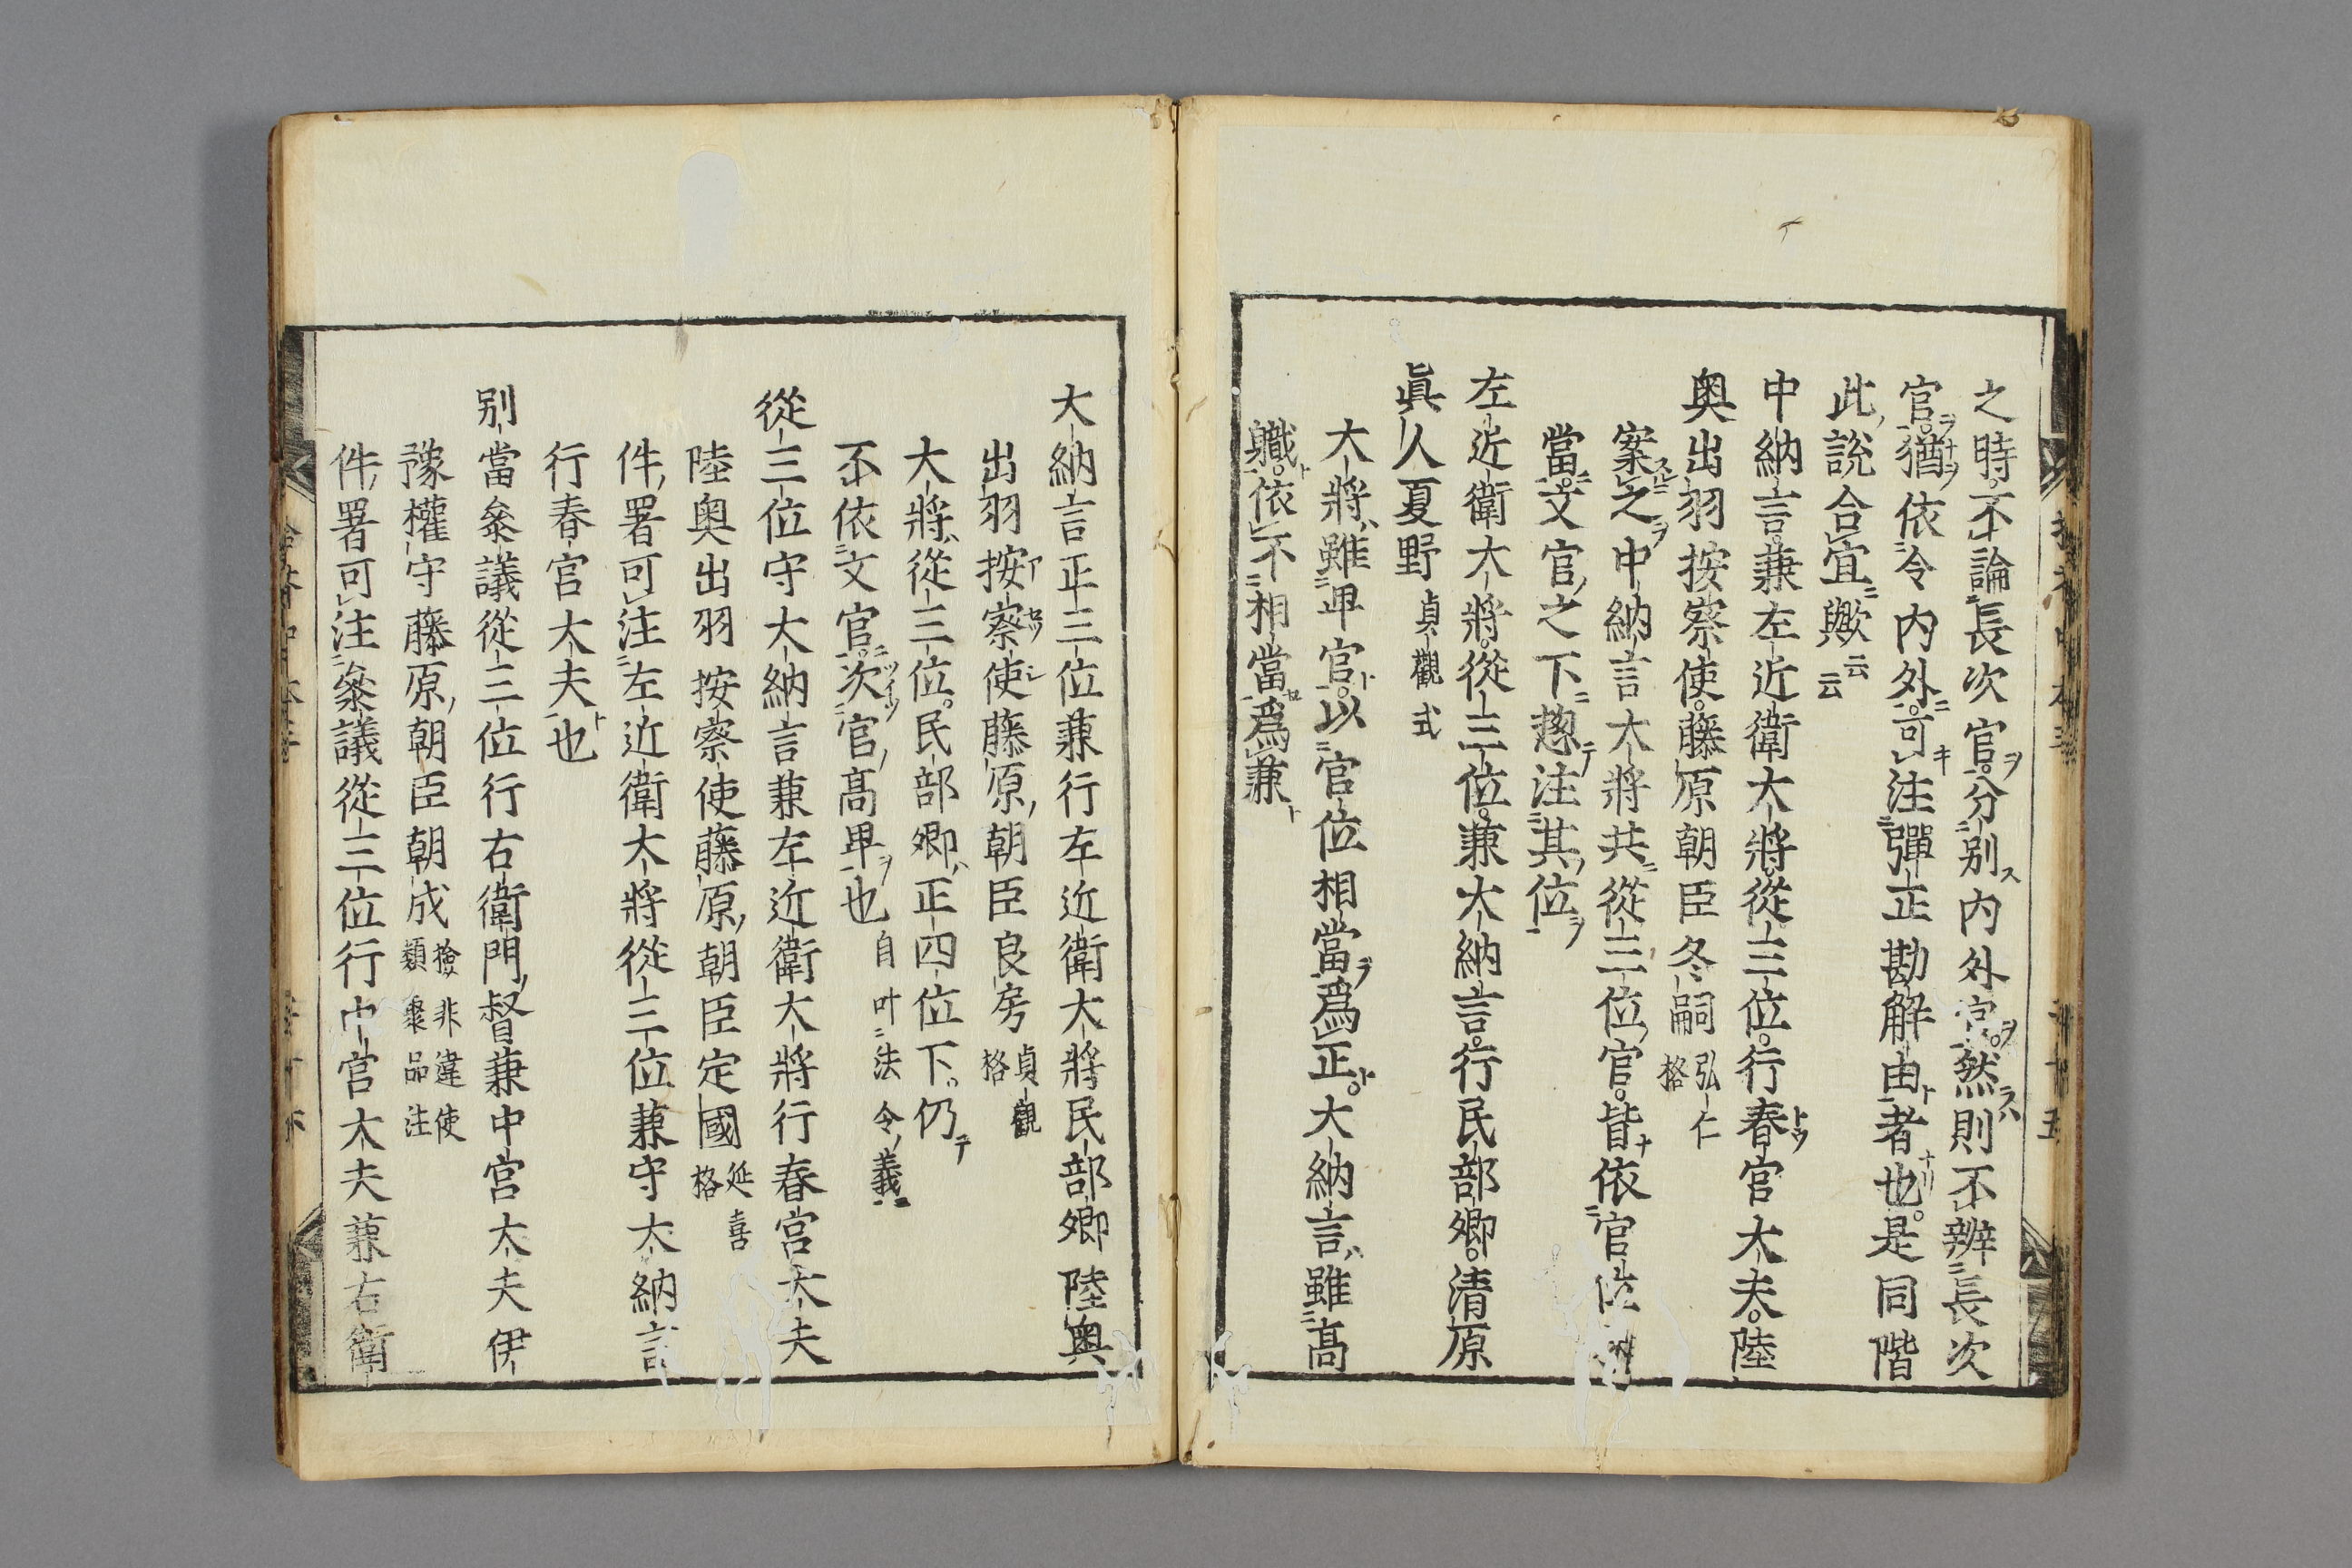 之時不論長次官分別内外官然則不辨長次
官猶依令内外可注彈正勘解由者也是同階
此說合宜歟云云
中納言兼左近衞大將從三位行春宮大夫陸
奥出羽按察使藤原朝臣冬嗣弘仁格
案之中納言大將共從三位官皆依官位
當文官之下惣注其位
左近衞大將從三位兼大納言行民部卿清原
眞人夏野貞觀式
大將雖卑官以官位相當爲正大納言雖高
職依不相當爲兼
大納言正三位兼行左近衞大將民部卿陸奥
出羽按察使藤原朝臣良房貞觀格
大將從三位民部卿正四位下仍
不依文官次官高卑也自叶法令義
從三位守大納言兼左近衞大將行春宮大夫
陸奥出羽按察使藤原朝臣定國延喜格
件署可注左近衞大將從三位兼守大納言
行春宮大夫也
別當參議從三位行右衞門督兼中宮大夫伊
豫權守藤原朝臣朝成檢非違使類聚品注
件署可注參議從三位行中宮大夫兼右衞